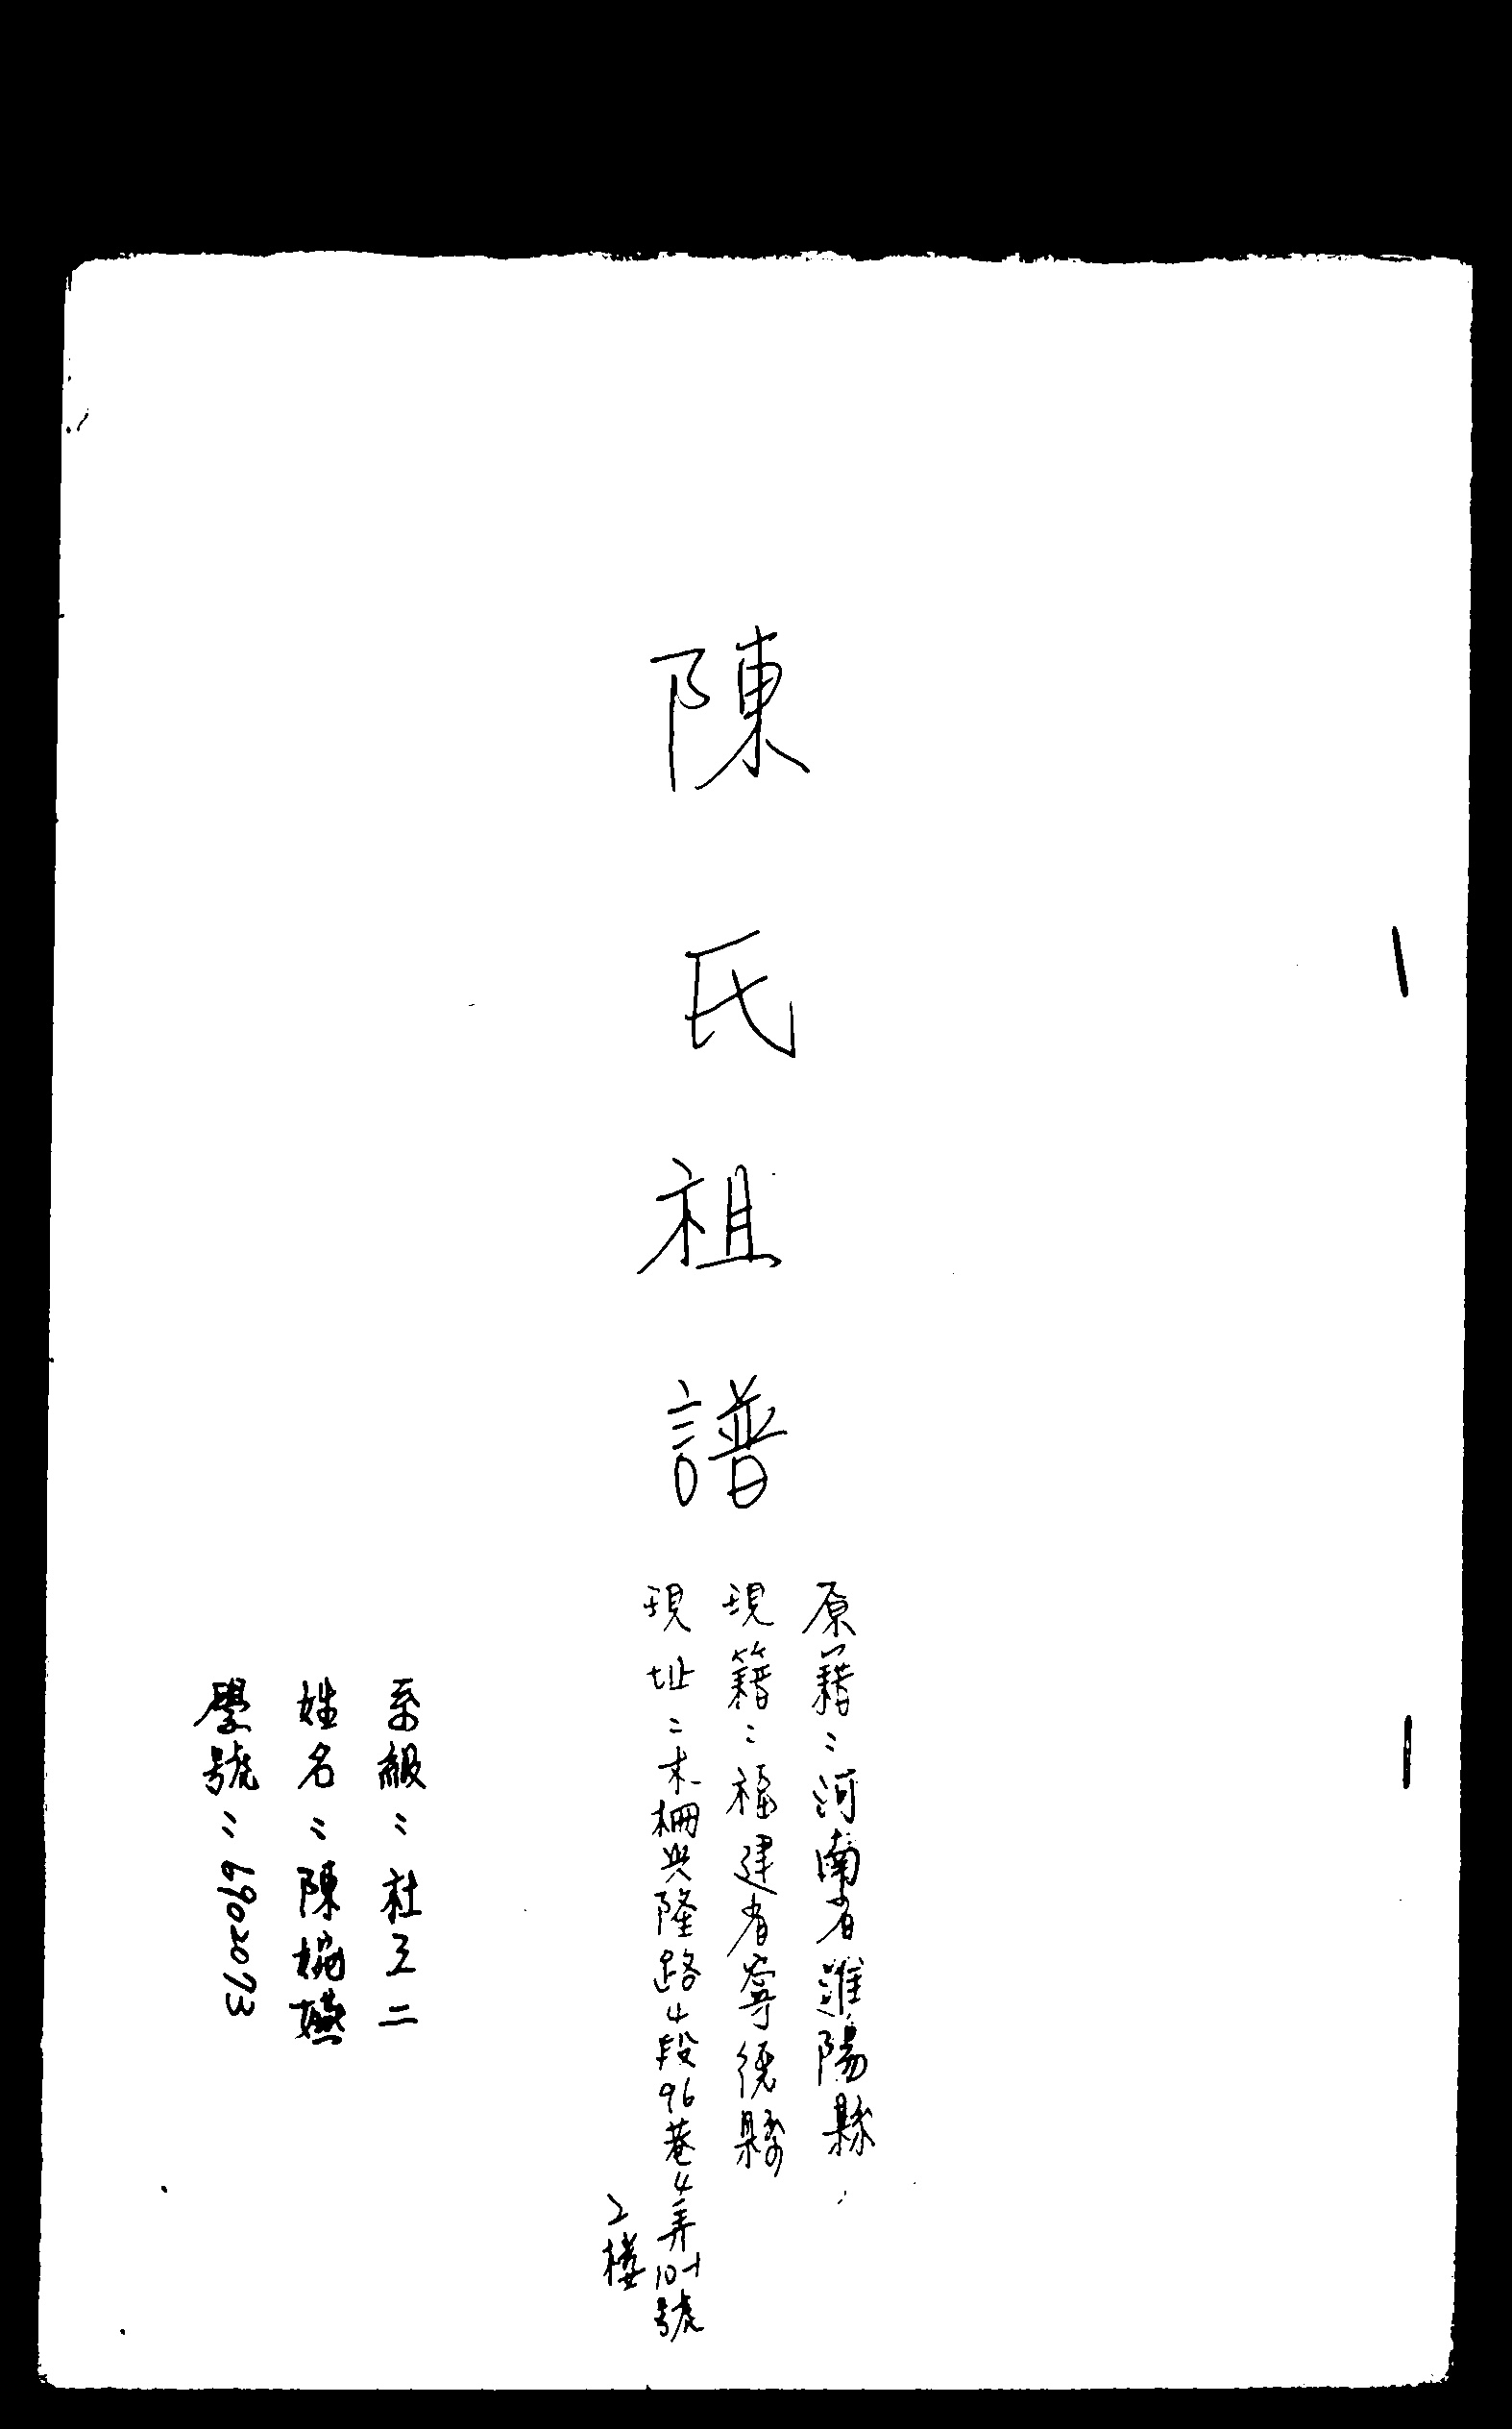 陳氏祖譜
原籍：河南省淮陽縣
現籍：福建省寧德縣
現址：木柵興隆路4段96巷4弄10-1號
2樓
系級：社工二
姓名：陳婉嬿
學號：6902073